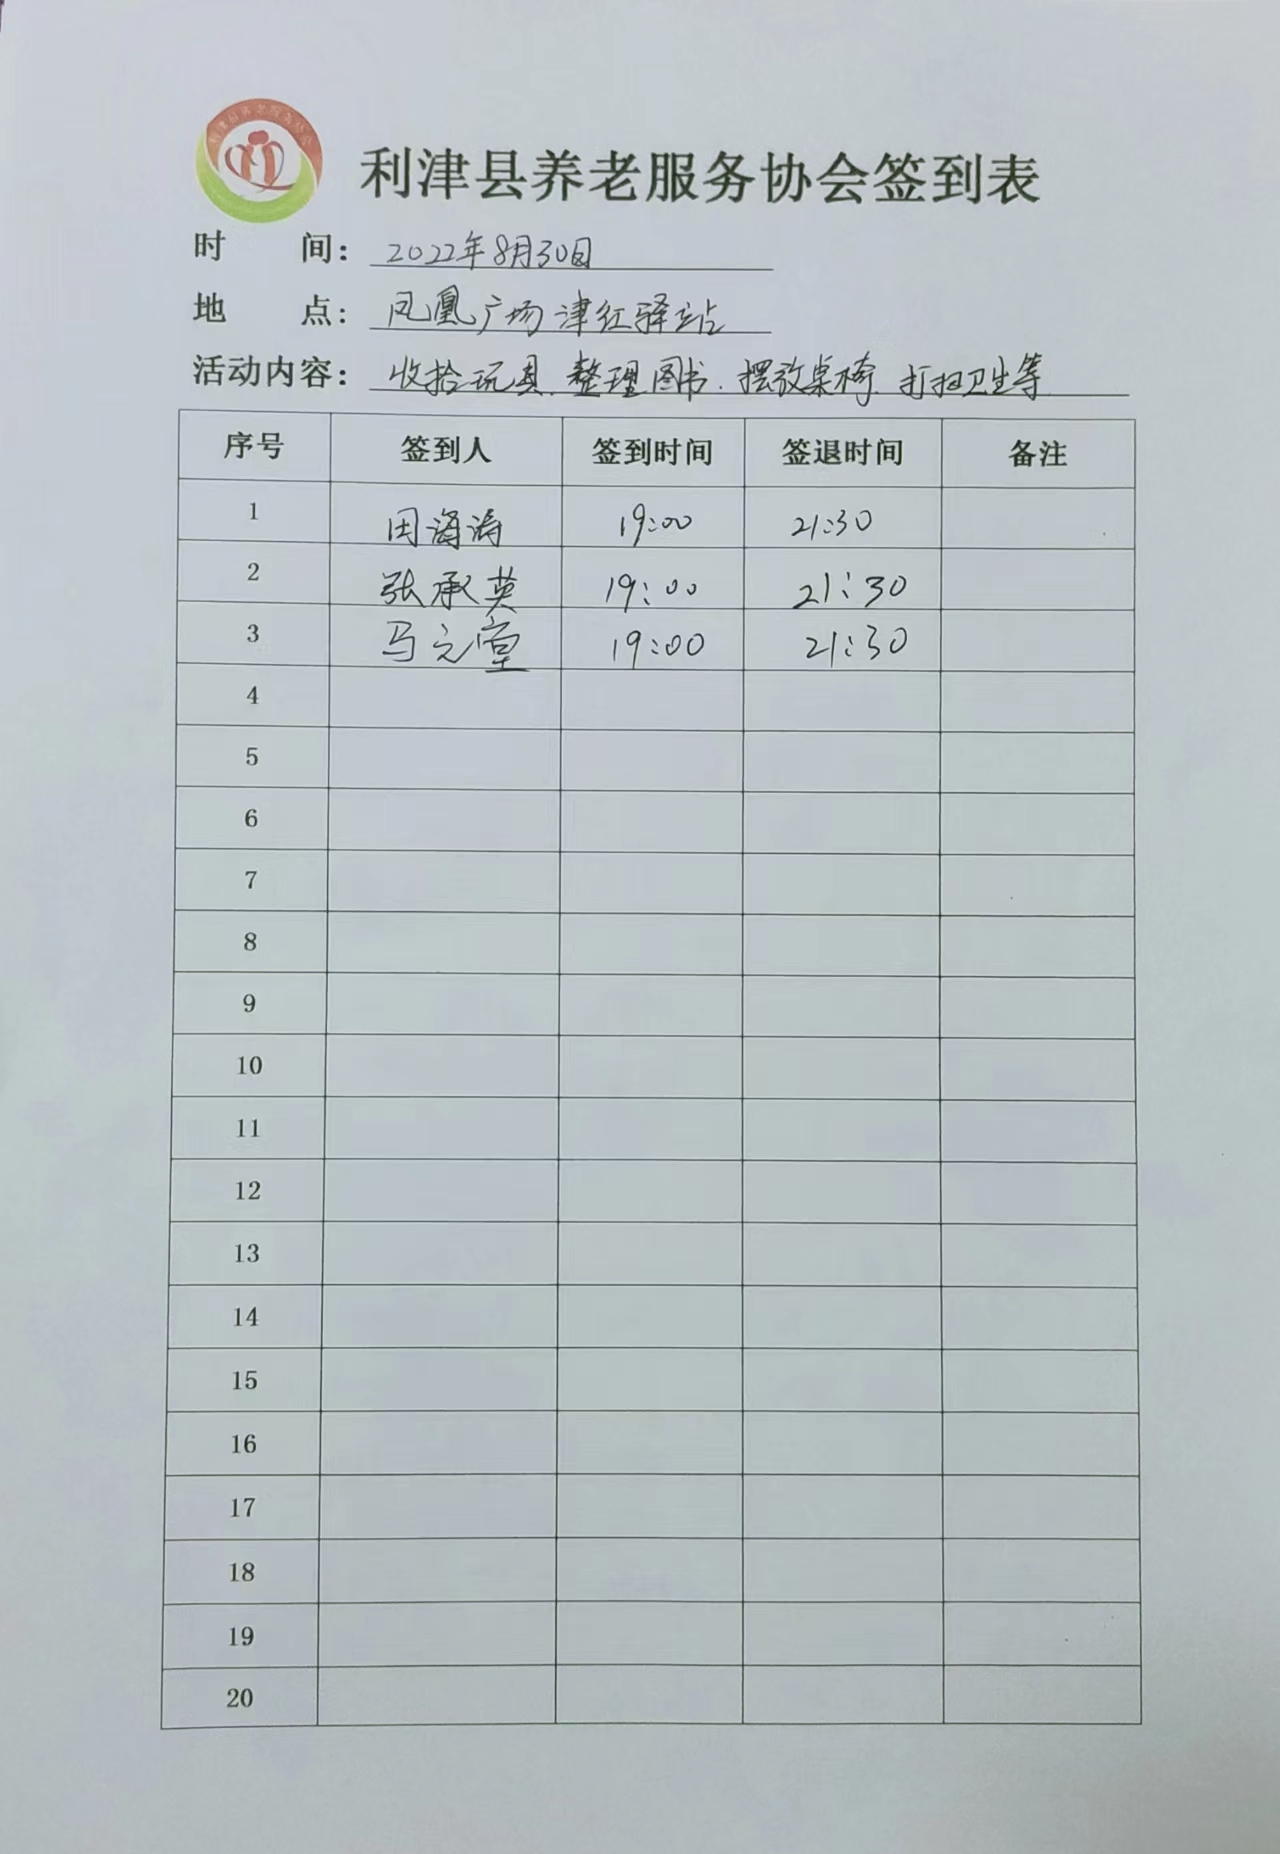 利津县养老服务协会
利津县养老服务协会签到表
时 间: 2022年8月30日
地 点: 凤凰广场津红驿站
活动内容: 收拾玩具、整理图书、摆放桌椅、打扫卫生等
序号 签到人 签到时间 签退时间 备注
1 田海涛 19:00 21:30
2 张承英 19:00 21:30
3 马元堂 19:00 21:30
4
5
6
7
8
9
10
11
12
13
14
15
16
17
18
19
20